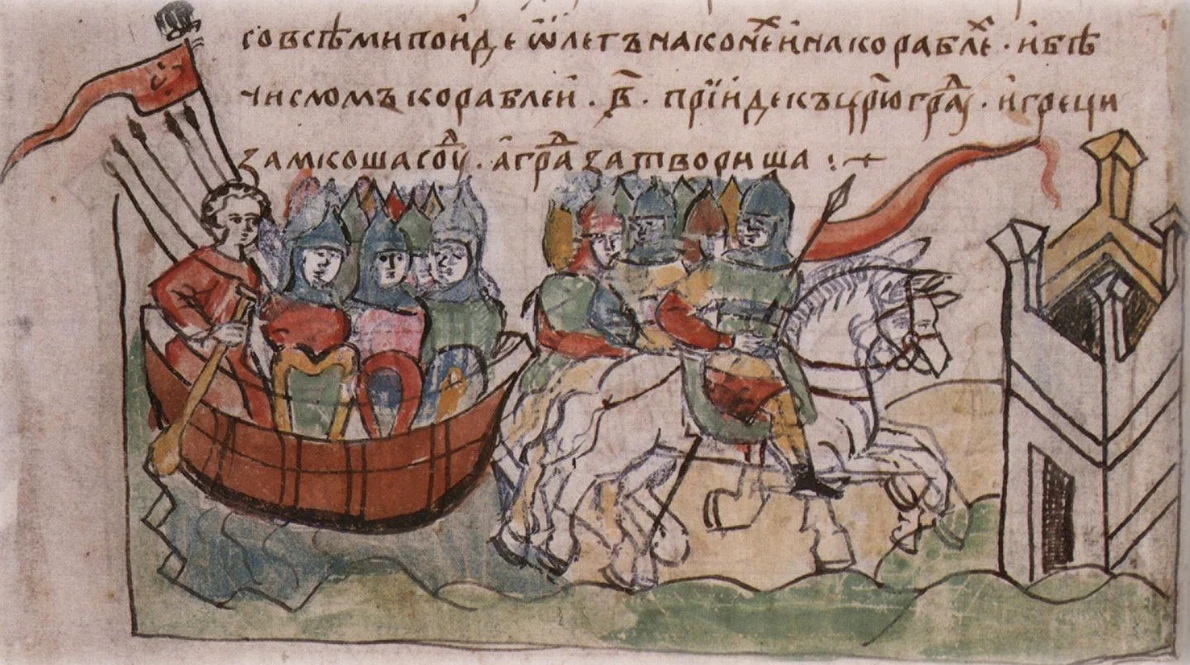 со всѣми поиде ѡлегъ на конеⷯ и на кораблеⷯ · и бѣ
числомъ кораблеи · в҃ · прїиде къ цр҃ю граⷣу · и греци
замкоша соуⷣ · а граⷣ затвориша :~